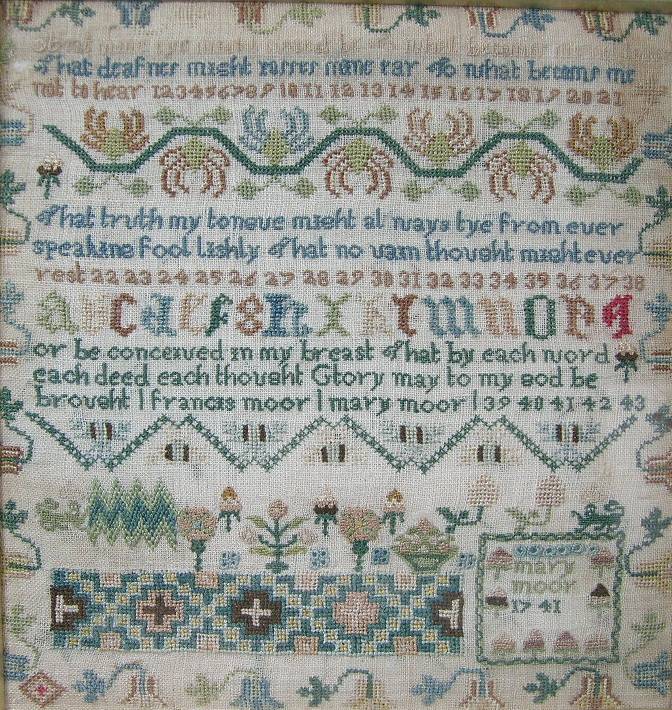 That deafnes might passes mine ear To what became me
not to hear 1 2 3 4 5 6 7 8 9 10 11 12 13 14 15 16 17 18 19 20 21
That truth my tongue might al ways tye from ever
speaking fool lishly That no vain thought might ever
rest 22 23 24 25 26 27 28 29 30 31 32 33 34 39 36 37 38
a c d e f g h i k l m n o p q
or be conceived in my breast That by each word
each deed each thought Glory may to my god be
brought | francis moor | mary moor | 39 40 41 42 43
mary
moor
17 41